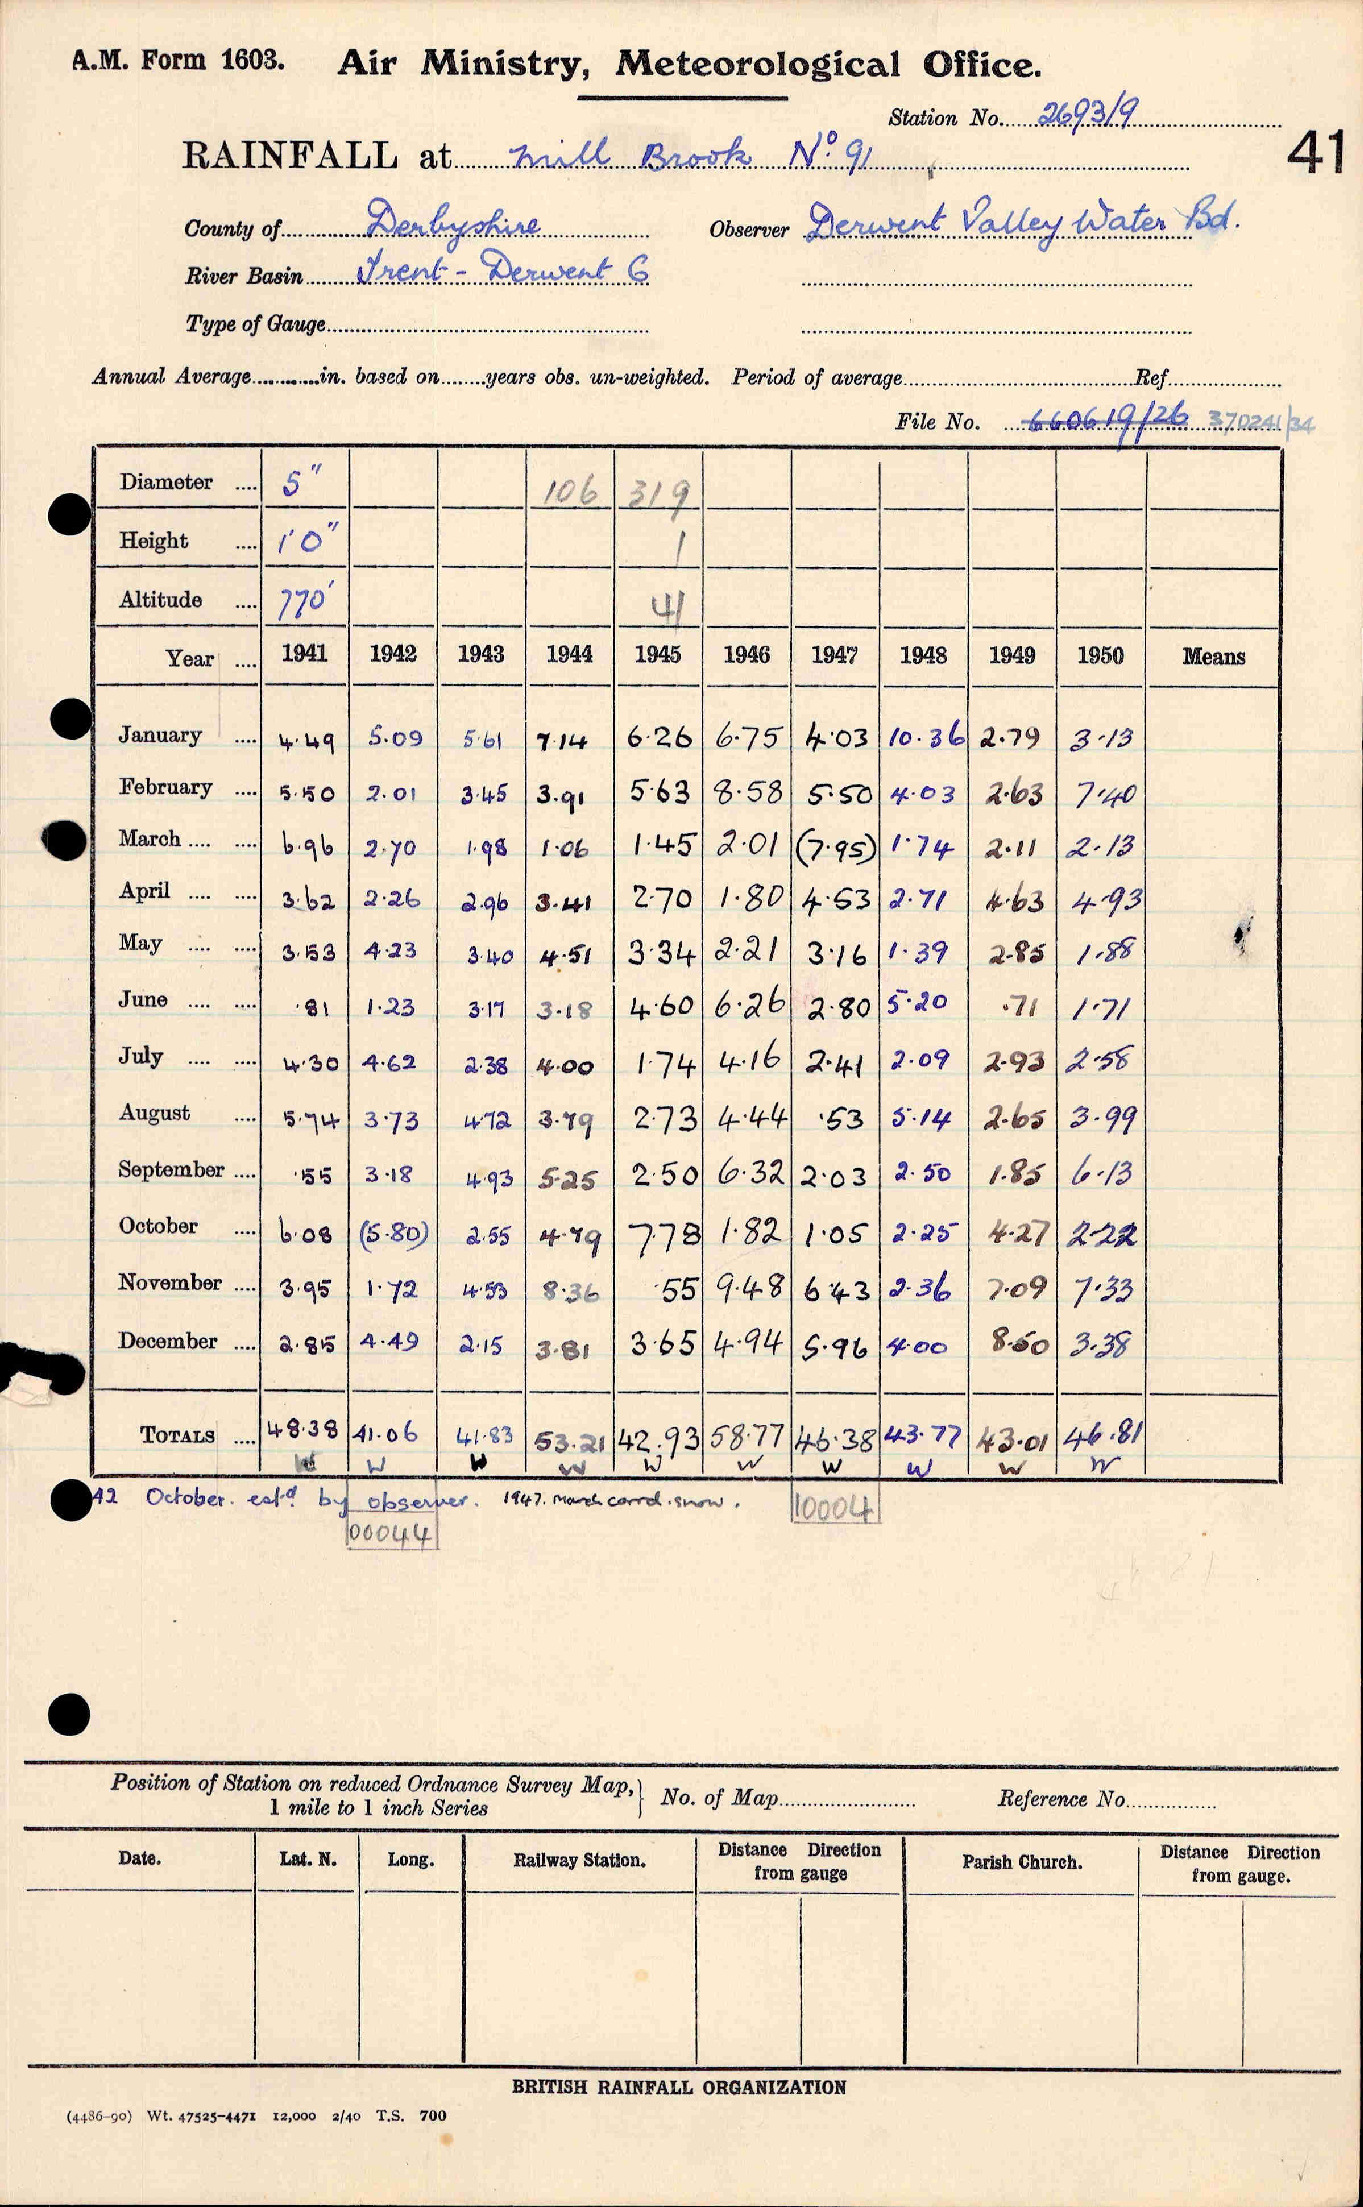 A.M. Form 1603. Air Ministry, Meteorological Office.
Station No. 2693/9
RAINFALL at Mill Brook No. 91
41
County of Derbyshire Observer Derwent Valley Water Bd.
River Basin Trent - Derwent 6
Type of Gauge
Annual Average in. based on years obs. un-weighted. Period of average Ref
File No. 660619/26 370241/34
Diameter .... 5" 106 319
Height .... 1'0" 1
Altitude .... 770' 41
Year .... 1941 1942 1943 1944 1945 1946 1947 1948 1949 1950 Means
January .... 4.49 5.09 5.61 7.14 6.26 6.75 4.03 10.36 2.79 3.13
February .... 5.50 2.01 3.45 3.91 5.63 8.58 5.50 4.03 2.63 7.40
March .... .... 6.96 2.70 1.98 1.06 1.45 2.01 (7.95) 1.74 2.11 2.13
April .... .... 3.62 2.26 2.96 3.41 2.70 1.80 4.53 2.71 4.63 4.93
May .... .... 3.53 4.23 3.40 4.51 3.34 2.21 3.16 1.39 2.85 1.88
June .... .... .81 1.23 3.17 3.18 4.60 6.26 2.80 5.20 .71 1.71
July .... .... 4.30 4.62 2.38 4.00 1.74 4.16 2.41 2.09 2.93 2.58
August .... 5.74 3.73 4.72 3.79 2.73 4.44 .53 5.14 2.65 3.99
September .... .55 3.18 4.93 5.25 2.50 6.32 2.03 2.50 1.85 6.13
October .... 6.08 (5.80) 2.55 4.79 7.78 1.82 1.05 2.25 4.27 2.22
November .... 3.95 1.72 4.53 8.36 .55 9.48 6.43 2.36 7.09 7.33
December .... 2.85 4.49 2.15 3.81 3.65 4.94 5.96 4.00 8.50 3.38
TOTALS .... 48.38 41.06 41.83 53.21 42.93 58.77 46.38 43.77 43.01 46.81
W W W W W W W W W W
42 October. est'd by observer. 1947. March corrd. snow. 10004
00044
Position of Station on reduced Ordnance Survey Map, } No. of Map Reference No.
1 mile to 1 inch Series
Date. Lat. N. Long. Railway Station. Distance Direction from gauge Parish Church. Distance Direction from gauge.
BRITISH RAINFALL ORGANIZATION
(4486-90) Wt. 47525-4471 12,000 2/40 T.S. 700